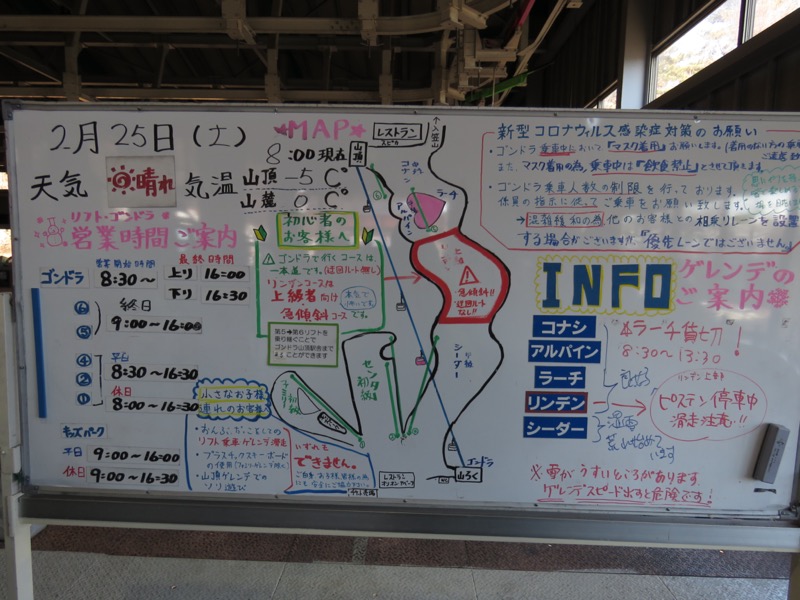 2月25日(土)
8:00現在
天気 晴れ 気温 山頂 -5℃
山麓 0℃
リフト・ゴンドラ
営業時間ご案内
営業開始時間 最終時間
ゴンドラ 8:30~ 上り 16:00
下り 16:30
⑥ 終日
⑤ 9:00~16:00
④ 平日
② 8:30~16:30
① 休日
8:00~16:30
キッズパーク
平日 9:00~16:00
休日 9:00~16:30
小さなお子様
連れのお客様
・おんぶ、だっこしての
リフト乗車・ゲレンデ滑走
・プラスチックスキー・ボード
の使用
・山頂ゲレンデでの
ソリ遊び
いずれも
できません。
★MAP★
初心者の
お客様へ
ゴンドラで行くコースは、
一本道です。(迂回ルート無し)
リンデンコースは
上級者向け
急傾斜コースです。
第5→第6リフトを
乗り継ぐことで
ゴンドラ山頂駅舎まで
行くことができます
レストラン
スピカ
山頂
入笠山
コナシ
ラーチ
アルパイン
上級
リンデン
急傾斜!!
迂回ルート
なし!!
シーダー
中級
センター
初級
ファミリー
初級
ゴンドラ
山ろく
レストラン
チケット売場
新型コロナウィルス感染症対策のお願い
・ゴンドラ乗車中において『マスク着用』お願いします。
また、マスク着用の為、乗車中は『飲食禁止』とさせて頂きます。
・ゴンドラ乗車人数の制限を行っております。
係員の指示に従ってご乗車をお願い致します。
→混雑緩和の為、他のお客様との相乗りレーンを設置
する場合がございますが、『優先レーンではございません』
INFO ゲレンデの
ご案内
コナシ
アルパイン
ラーチ
リンデン
シーダー
ラーチ貸切!
8:30~13:30
リンデン上部
ピステン停車中
滑走注意!!
※雪がうすいところがあります
ゲレンデスピード出すと危険です!